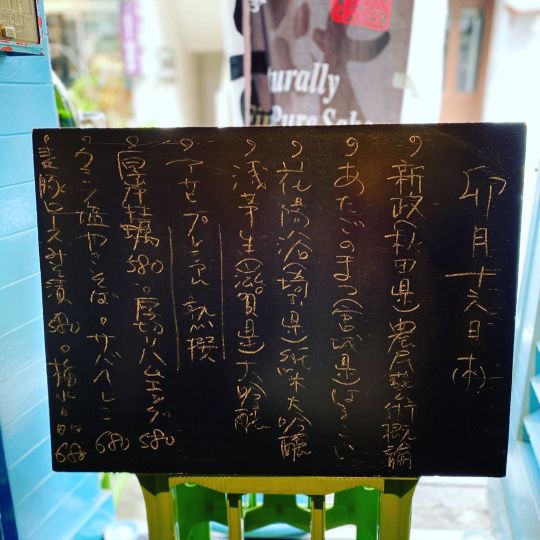 卯月十六日(木)
新政(秋田県)農民藝術概論
あたごのまつ(宮城県)はるこい
花陽浴(埼玉県)純米大吟醸
浅茅生(滋賀県)大吟醸
アサヒ プレミアム 熟撰
厚岸牡蠣 580 厚切りハムエッグ 580
塩やきそば サバへしこ 680
豚ロースみそ漬 580 680
urally
Pure Sake